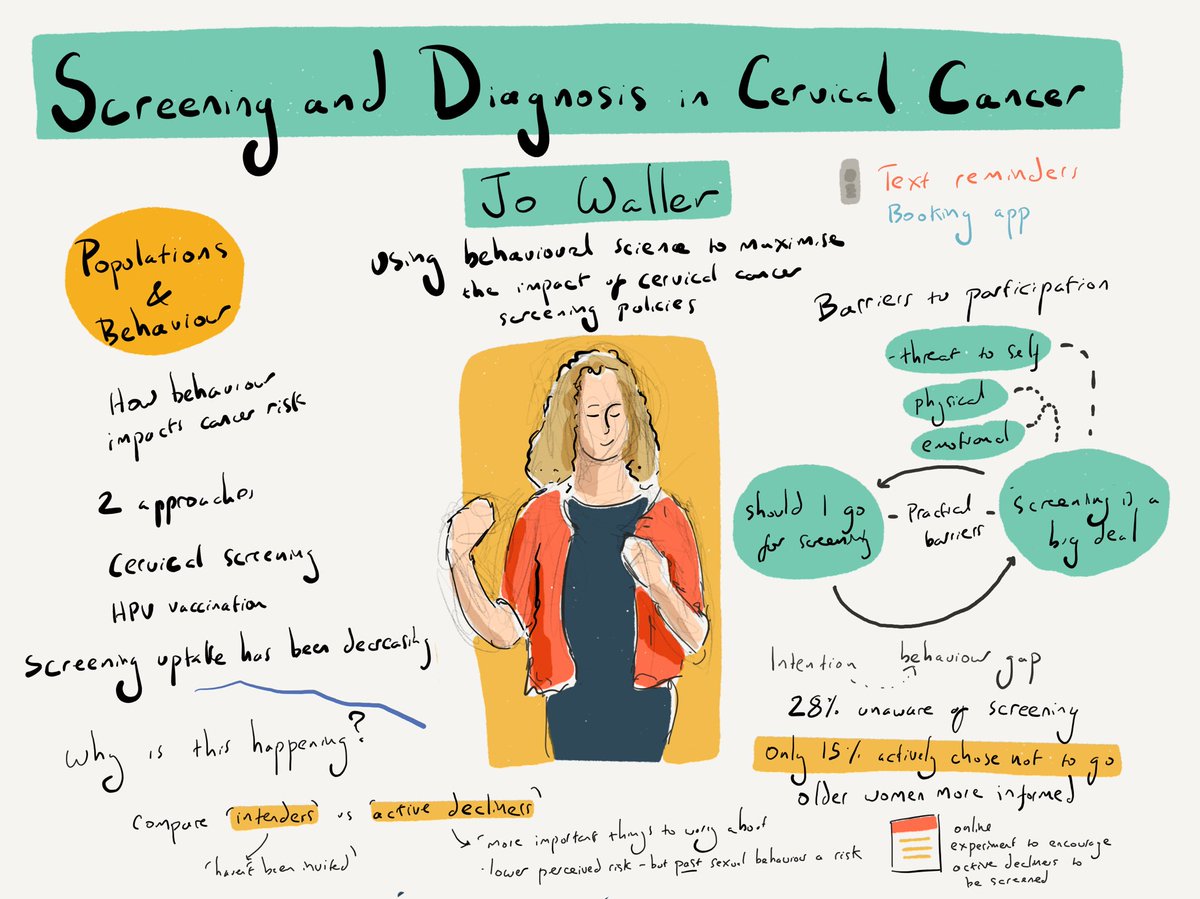 Screening and Diagnosis in Cervical Cancer
Jo Waller
using behavioural science to maximise
the impact of cervical cancer
screening policies
Text reminders
Booking app
Populations
&
Behaviour
How behaviour
impacts cancer risk
2 approaches
Cervical screening
HPV vaccination
Screening uptake has been decreasing
Why is this happening?
Compare 'intenders' vs 'active decliners'
"haven't been invited"
- more important things to worry about
- lower perceived risk - but past sexual behaviour a risk
Barriers to participation
- threat to self
physical
emotional
should I go
for screening
- Practical -
barriers
Screening is a
big deal
Intention behaviour gap
28% unaware of screening
Only 15% actively chose not to go
older women more informed
online
experiment to encourage
active decliners to
be screened